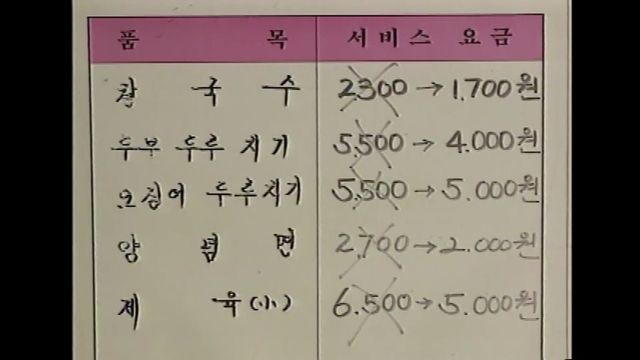 품 목 서비스 요금
칼 국 수 2.300→1.700원
두부 두루 치기 5.500→4.000원
오징어 두루치기 5.500→5.000원
양 념 면 2.700→2.000원
제 육(小) 6.500→5.000원